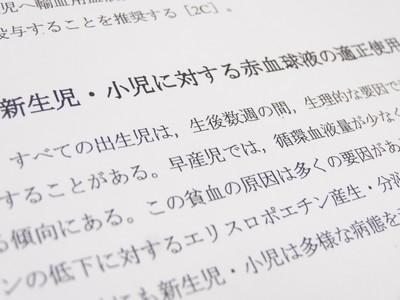 児へ輸血用血
投与することを推奨する［2C］。
新生児・小児に対する赤血球液の適正使用
すべての出生児は，生後数週の間，生理的な要因で
することがある。早産児では，循環血液量が少なく
る傾向にある。この貧血の原因は多くの要因があ
ンの低下に対するエリスロポエチン産生・分泌
にも新生児・小児は多様な病態を